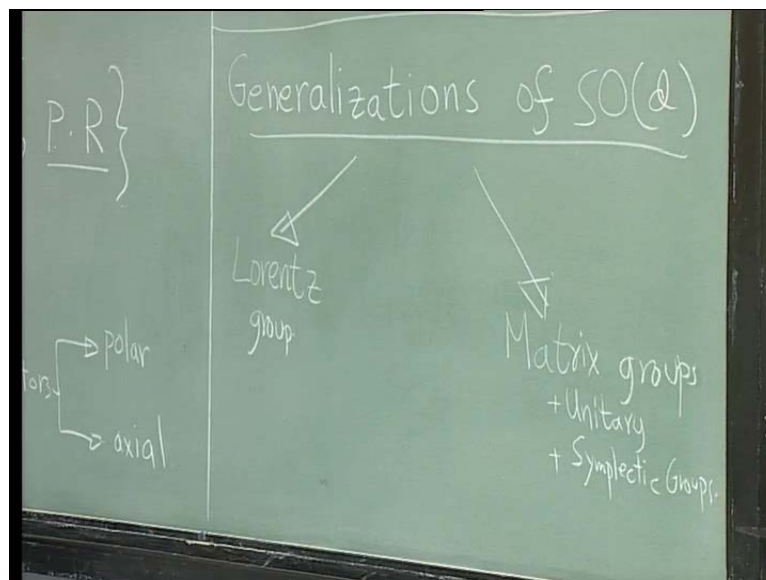 P.R}
polar
axial
Generalizations of SO(d)
Lorentz
group
Matrix groups
+ Unitary
+ Symplectic Groups.